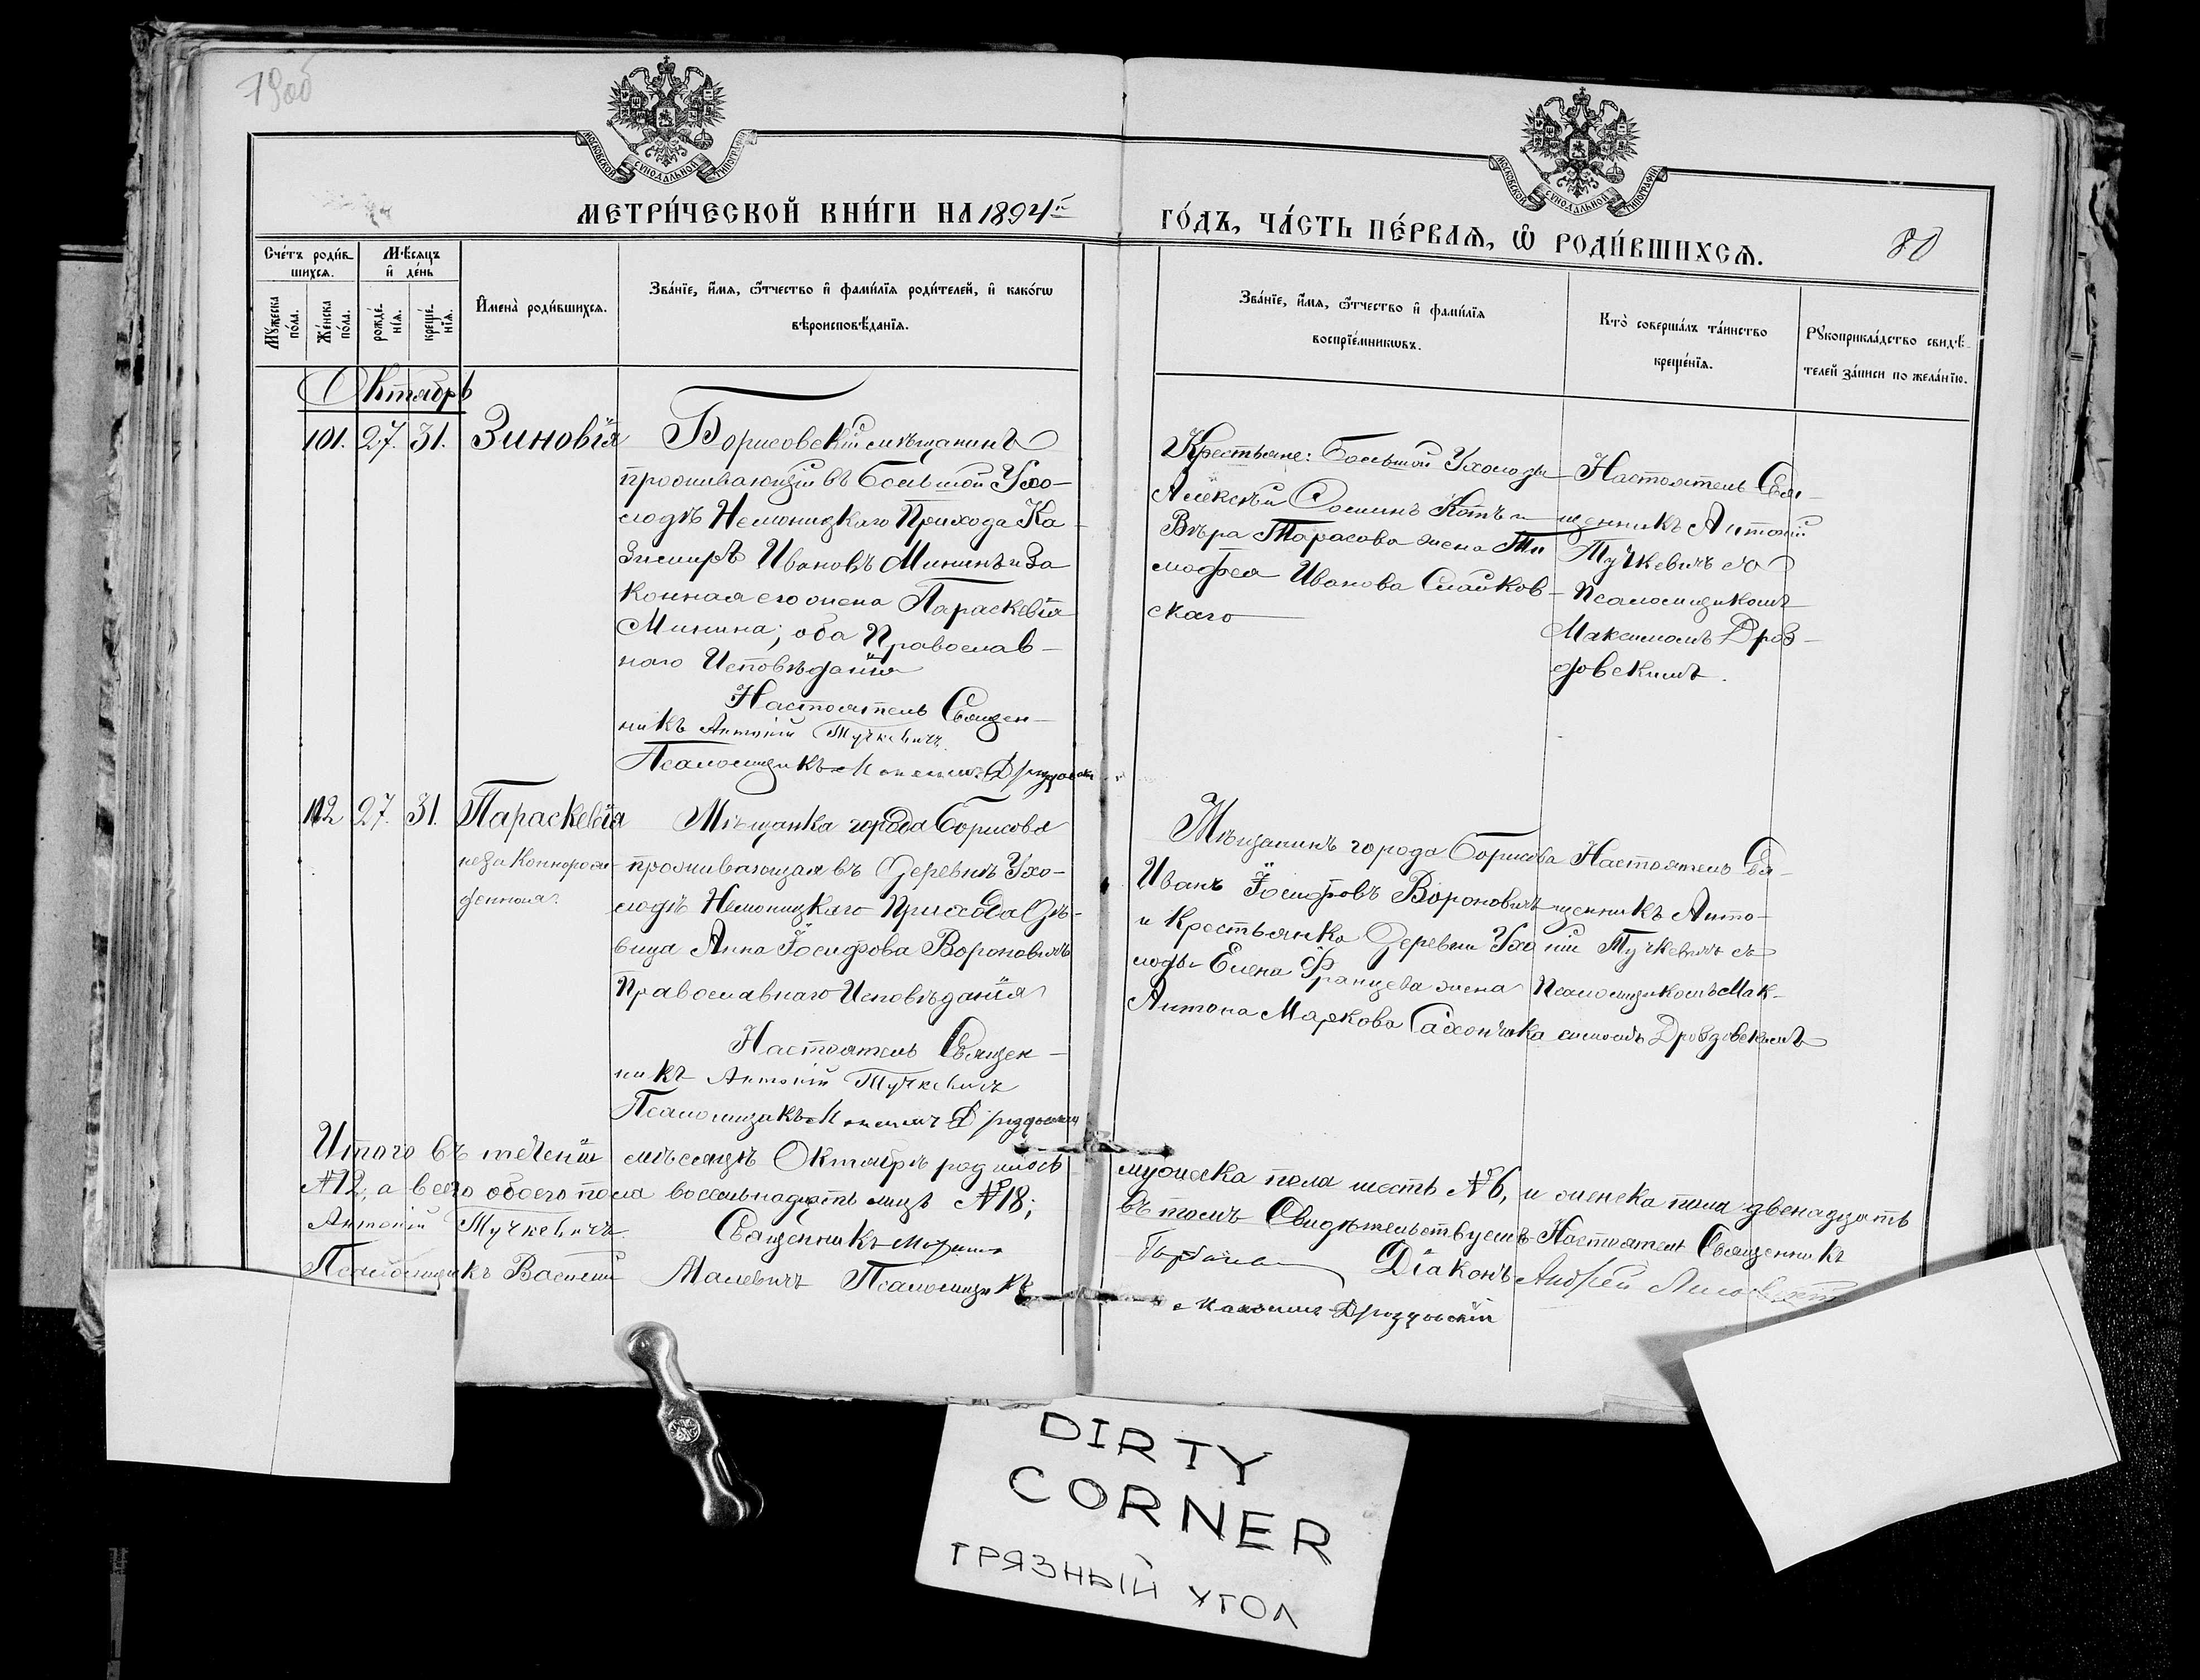 79об
МОСКОВСКОЙ СѴНОДАЛЬНОЙ ТИПОГРАФІИ
МОСКОВСКОЙ СѴНОДАЛЬНОЙ ТИПОГРАФІИ
МЕТРИ́ЧЕСКОЙ КНИ́ГИ НА 1894й
ГО́ДЪ, ЧА́СТЬ ПЕ́РВАѦ, Ѡ РОДИ́ВШИХСѦ.
80
Сче́тъ роди́в
шихсѧ.
Мꙋ́жеска по́ла.
Же́нска по́ла.
Мѣ́сѧцъ
и҆ де́нь
рожде́нїѧ.
креще́нїѧ.
И҆мена̀ роди́вшихсѧ.
Зва́нїе, и҆́мѧ, ѻ҆́тчество и҆ фами́лїѧ роди́телей, и҆ како́гѡ
вѣроисповѣ́данїѧ.
Зва́нїе, и҆́мѧ, ѻ҆́тчество и҆ фами́лїѧ
воспрїе́мникѡвъ.
Кто̀ соверша́лъ та́инство
креще́нїѧ.
Рꙋкоприкла́дство свидѣ́-
телей за́писи по жела́нїю.
Октябрь
101. 27. 31. Зиновія
Борисовскій мѣщанинъ
проживающій въ Большой Ухо-
лодѣ Немоницкаго Прихода Ка-
зимиръ Ивановъ Мининъ и за
конная его жена Параскевія
Минина; оба Православ-
наго Исповѣданія
Настоятель Священ-
никъ Антоній Тучкевичъ.
Псаломщикъ Максимъ Дроздовскій
Крестьяне: Большой Ухолоды
Алексѣй Ѳоминъ Котъ и
Вѣра Тарасова жена Ти
моѳея Иванова Слайков-
скаго
Настоятель Свя-
щенникъ Антоній
Тучкевичъ съ
Псаломщикомъ
Максимомъ Дроз-
довскимъ.
112 27. 31. Параскевія
незаконнорож-
денная.
Мѣщанка города Борисова
проживающая въ Деревнѣ Ухо-
лодѣ Немоницкаго Прихода Дѣ-
вица Анна Іосифова Вороновичъ
Православнаго Исповѣданія
Настоятель Священ-
никъ Антоній Тучкевичъ
Псаломщикъ Максимъ Дроздовскій
Мѣщанинъ города Борисова
Иванъ Іосифовъ Вороновичъ
и Крестьянка Деревни Ухо
лоды Елена Францева жена
Антона Маркова Сахончика
Настоятель Свя-
щенникъ Анто-
ній Тучкевичъ съ
Псаломщикомъ Мак-
симомъ Дроздовскимъ
Итого въ теченіи мѣсяцѣ Октябрѣ родилось мужеска пола шесть №6, и женска пола двенадцать
№12, а всего обоего пола восемьнадцать лицъ №18; въ томъ Свидѣтельствуемъ Настоятель Священникъ
Антоній Тучкевичъ Священникъ Діаконъ Андрей
Псаломщикъ Василій Малевичъ Псаломщикъ Максимъ Дроздовскій
DIRTY
CORNER
ГРЯЗНЫЙ УГОЛ